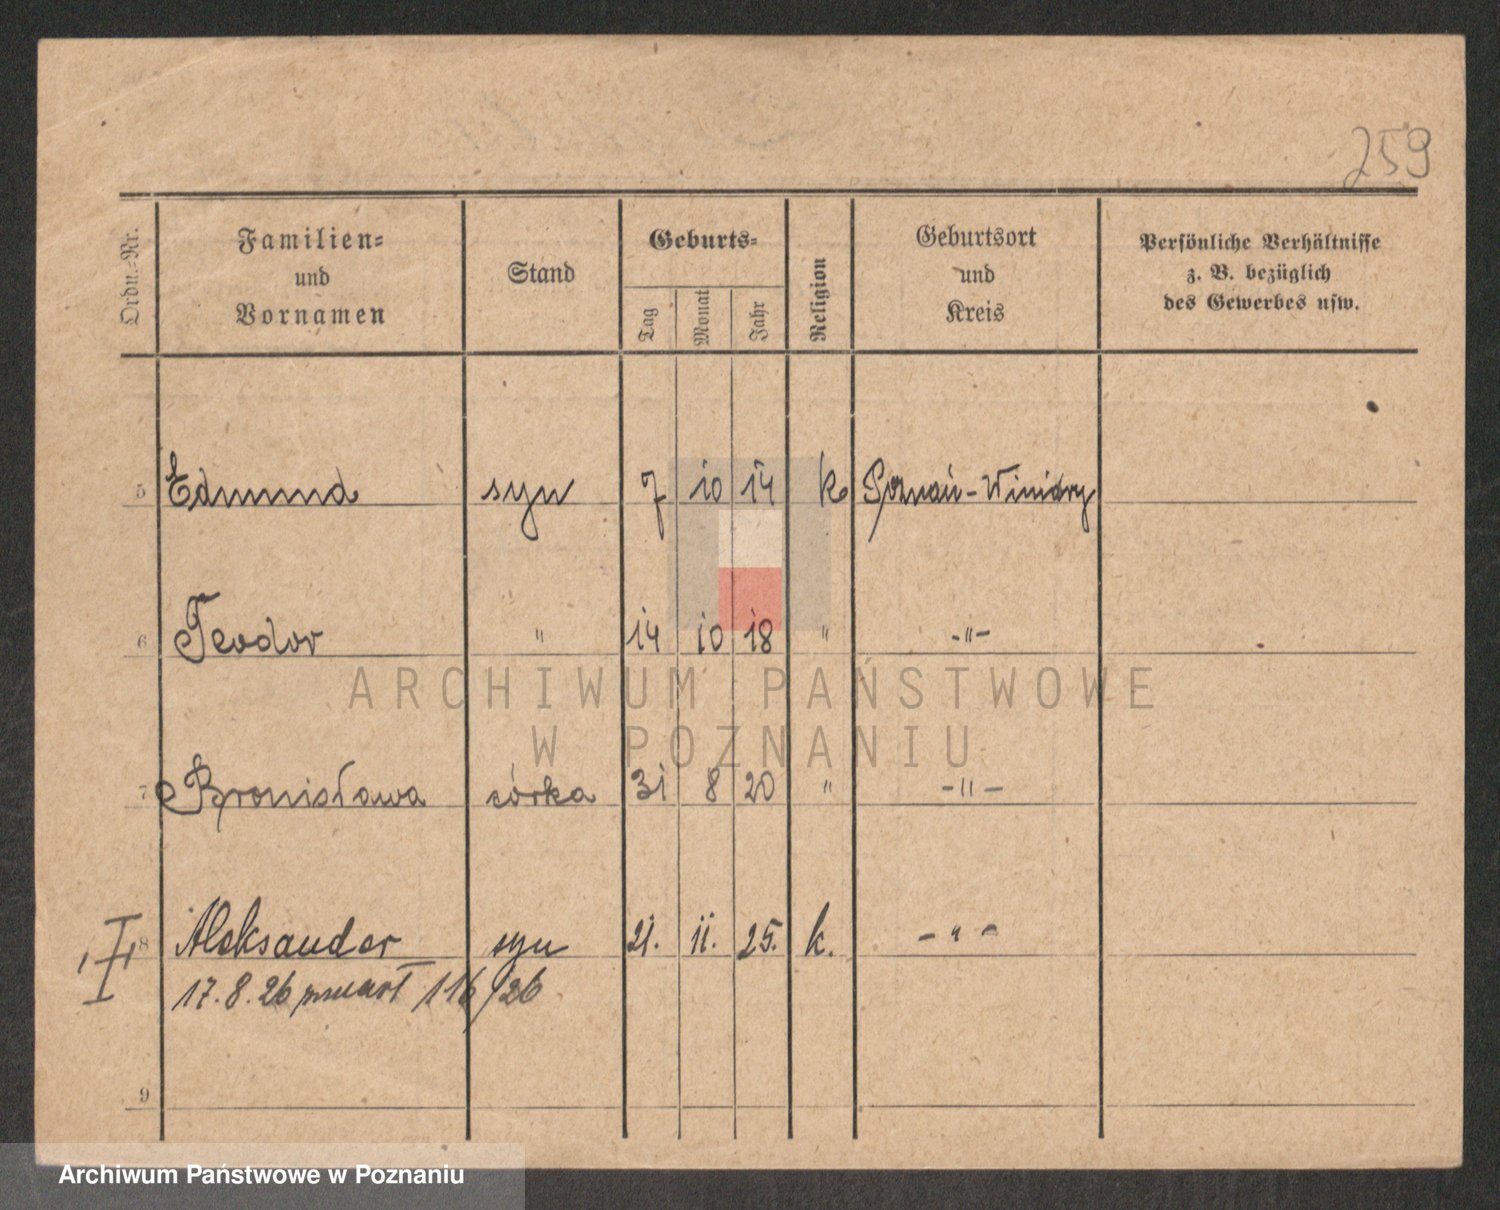 259
Ordn.-Nr. Familien- und Vornamen Stand Geburts- Tag Monat Jahr Religion Geburtsort und Kreis Persönliche Verhältnisse z. B. bezüglich des Gewerbes usw.
5 Edmund syn 7 10 14 k Poznań-Winiary
6 Teodor " 14 10 18 " -"-
ARCHIWUM PAŃSTWOWE
W POZNANIU
7 Bronisława córka 31 8 20 " -"-
8 Aleksander syn 21. 11. 25. k. - " -
17.8.26 zmarł 116/26
9
Archiwum Państwowe w Poznaniu